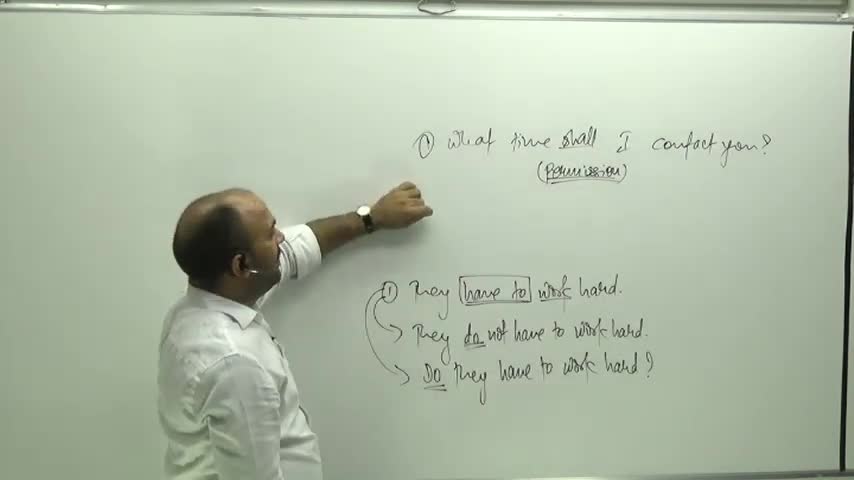 ① What time shall I contact you?
(Permission)
① They have to work hard.
They do not have to work hard.
Do they have to work hard?